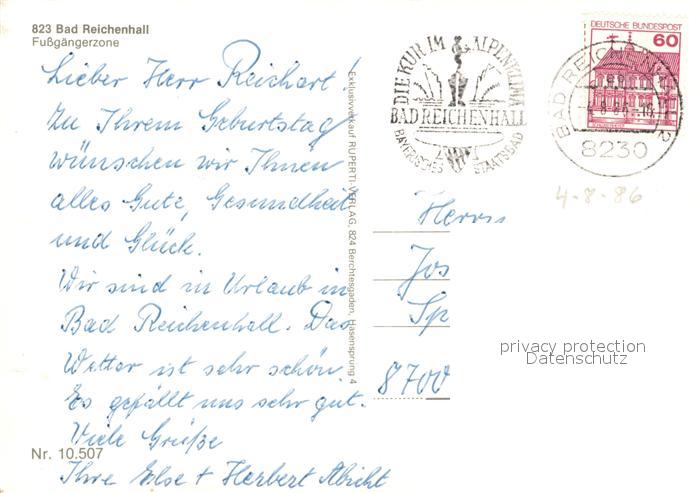 823 Bad Reichenhall
Fußgängerzone
Lieber Herr Reichart!
Zu Ihrem Geburtstag
wünschen wir Ihnen
alles Gute, Gesundheit
und Glück.
Wir sind in Urlaub in
Bad Reichenhall. Das
Wetter ist sehr schön.
Es gefällt uns sehr gut.
Viele Grüße
Ihre Else + Herbert Abicht
Nr. 10.507
Exklusivverkauf RUPERTI-VERLAG, 824 Berchtesgaden, Hasensprung 4
DIE KUR IM ALPENKLIMA
BAD REICHENHALL
BAYERISCHES STAATSBAD
DEUTSCHE BUNDESPOST
60
BAD REICHENHALL 2
8230
4-8-86
Herrn
Jos
Sp
8700
privacy protection
Datenschutz